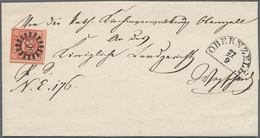 Von der kath. Kirchenverwaltung Obernzell
An das
Königliche Landgericht
N. E. 176.
OBERNZELL
27
9